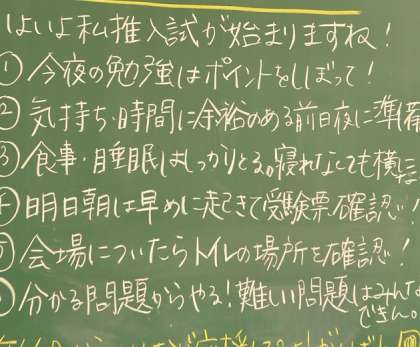 よいよ私立推入試が始まりますね!
①今夜の勉強はポイントをしぼって!
②気持ち・時間に余裕のある前日夜に準備
③食事・睡眠はしっかりとる。寝れなくても横に
④明日朝は早めに起きて受験票確認!
⑤会場についたらトイレの場所を確認!
分かる問題からやる!難しい問題はみんな
できん。